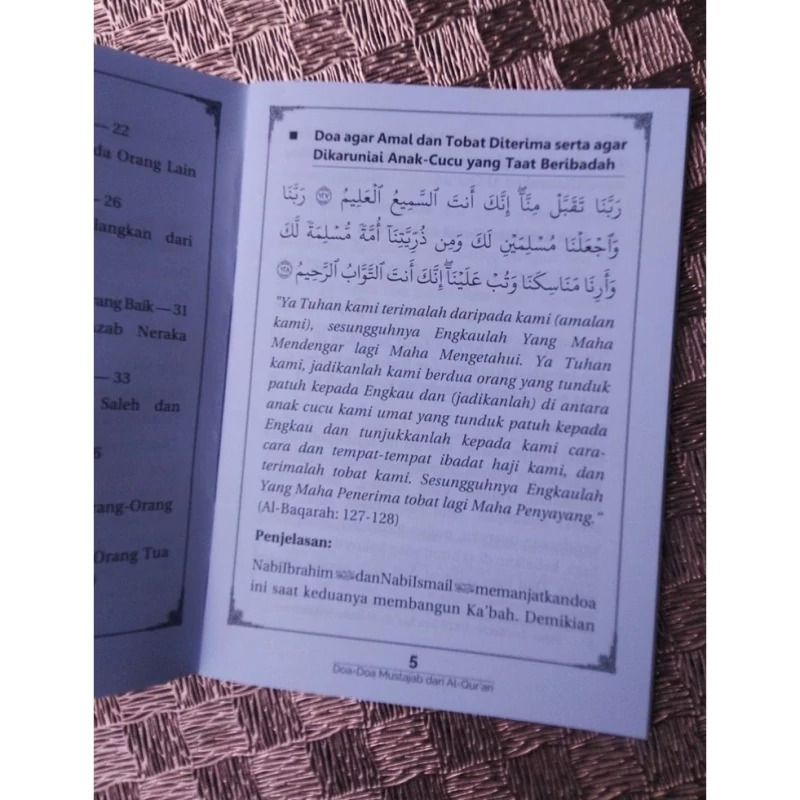 — 22
da Orang Lain
– 26
langkan dari
rang Baik — 31
Azab Neraka
— 33
Saleh dan
ang-Orang
Orang Tua
■ Doa agar Amal dan Tobat Diterima serta agar
Dikaruniai Anak-Cucu yang Taat Beribadah
رَبَّنَا تَقَبَّلْ مِنَّآ ۖ إِنَّكَ أَنتَ ٱلسَّمِيعُ ٱلْعَلِيمُ ۝١٢٧ رَبَّنَا
وَٱجْعَلْنَا مُسْلِمَيْنِ لَكَ وَمِن ذُرِّيَّتِنَآ أُمَّةً مُّسْلِمَةً لَّكَ
وَأَرِنَا مَنَاسِكَنَا وَتُبْ عَلَيْنَآ ۖ إِنَّكَ أَنتَ ٱلتَّوَّابُ ٱلرَّحِيمُ ۝١٢٨
"Ya Tuhan kami terimalah daripada kami (amalan
kami), sesungguhnya Engkaulah Yang Maha
Mendengar lagi Maha Mengetahui. Ya Tuhan
kami, jadikanlah kami berdua orang yang tunduk
patuh kepada Engkau dan (jadikanlah) di antara
anak cucu kami umat yang tunduk patuh kepada
Engkau dan tunjukkanlah kepada kami cara-
cara dan tempat-tempat ibadat haji kami, dan
terimalah tobat kami. Sesungguhnya Engkaulah
Yang Maha Penerima tobat lagi Maha Penyayang."
(Al-Baqarah: 127-128)
Penjelasan:
NabiIbrahim danNabiIsmail memanjatkandoa
ini saat keduanya membangun Ka'bah. Demikian
5
Doa-Doa Mustajab dari Al-Qur'an